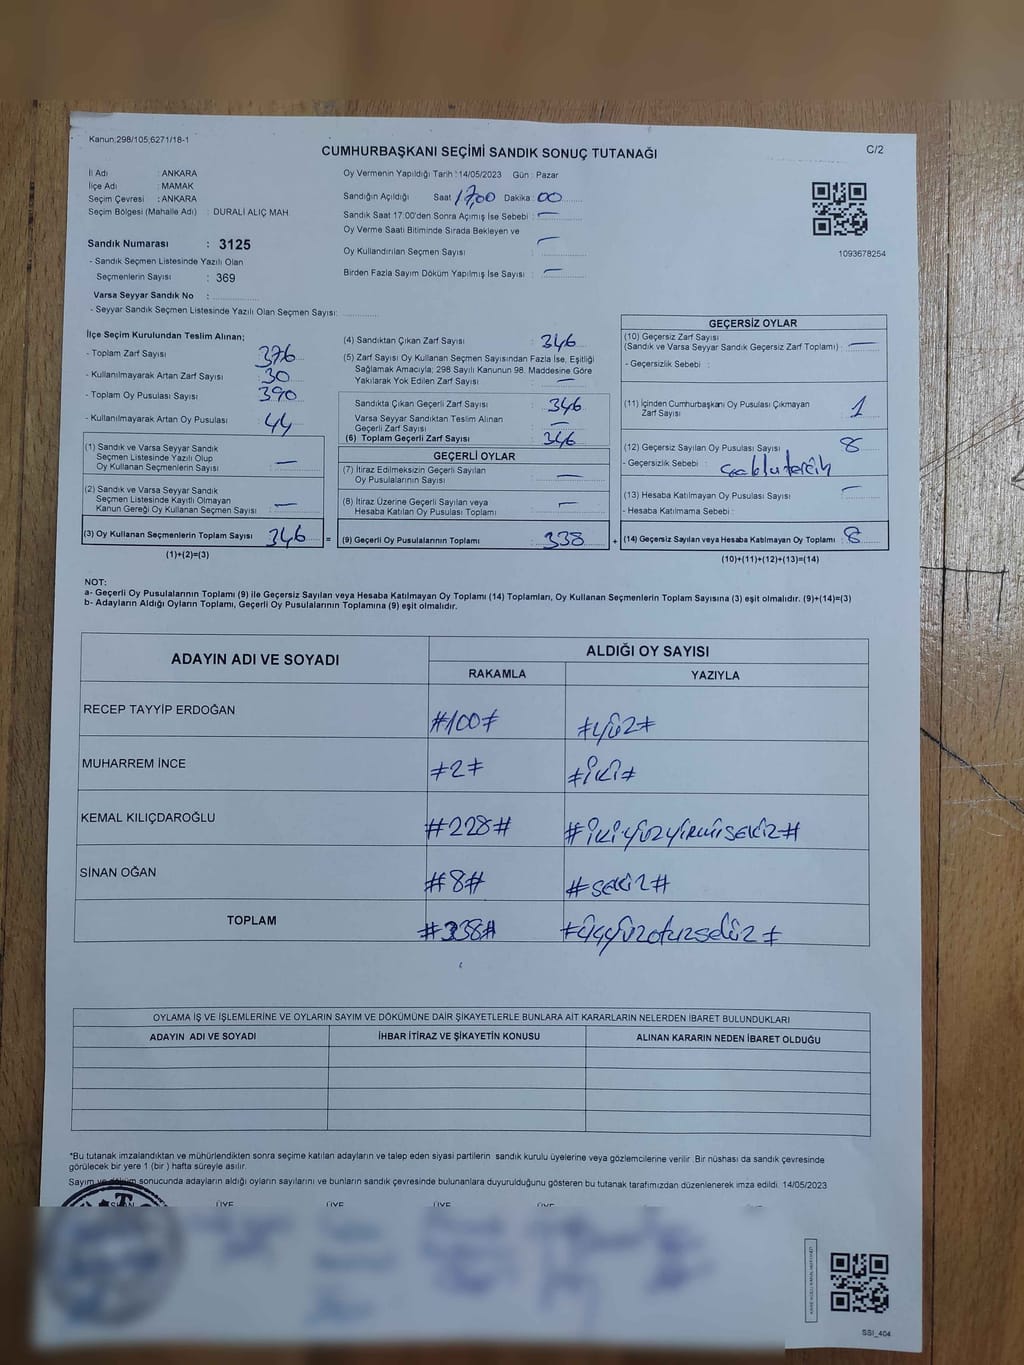 Kanun;298/105;6271/18-1
CUMHURBAŞKANI SEÇİMİ SANDIK SONUÇ TUTANAĞI
C/2
İl Adı : ANKARA
İlçe Adı : MAMAK
Seçim Çevresi : ANKARA
Seçim Bölgesi (Mahalle Adı) : DURALİ ALIÇ MAH
Sandık Numarası : 3125
- Sandık Seçmen Listesinde Yazılı Olan
Seçmenlerin Sayısı : 369
Varsa Seyyar Sandık No :
- Seyyar Sandık Seçmen Listesinde Yazılı Olan Seçmen Sayısı:
Oy Vermenin Yapıldığı Tarih : 14/05/2023 Gün : Pazar
Sandığın Açıldığı Saat 17,00 Dakika : 00
Sandık Saat 17:00'den Sonra Açımış İse Sebebi : —
Oy Verme Saati Bitiminde Sırada Bekleyen ve
Oy Kullandırılan Seçmen Sayısı : —
Birden Fazla Sayım Döküm Yapılmış İse Sayısı : —
1093678254
İlçe Seçim Kurulundan Teslim Alınan;
- Toplam Zarf Sayısı : 376
- Kullanılmayarak Artan Zarf Sayısı : 30
- Toplam Oy Pusulası Sayısı : 390
- Kullanılmayarak Artan Oy Pusulası : 44
(1) Sandık ve Varsa Seyyar Sandık
Seçmen Listesinde Yazılı Olup
Oy Kullanan Seçmenlerin Sayısı : —
(2) Sandık ve Varsa Seyyar Sandık
Seçmen Listesinde Kayıtlı Olmayan
Kanun Gereği Oy Kullanan Seçmen Sayısı : —
(3) Oy Kullanan Seçmenlerin Toplam Sayısı 346 =
(1)+(2)=(3)
(4) Sandıktan Çıkan Zarf Sayısı : 346
(5) Zarf Sayısı Oy Kullanan Seçmen Sayısından Fazla İse, Eşitliği
Sağlamak Amacıyla; 298 Sayılı Kanunun 98. Maddesine Göre
Yakılarak Yok Edilen Zarf Sayısı : —
Sandıkta Çıkan Geçerli Zarf Sayısı : 346
Varsa Seyyar Sandıktan Teslim Alınan
Geçerli Zarf Sayısı : —
(6) Toplam Geçerli Zarf Sayısı : 346
GEÇERLİ OYLAR
(7) İtiraz Edilmeksizin Geçerli Sayılan
Oy Pusulalarının Sayısı : —
(8) İtiraz Üzerine Geçerli Sayılan veya
Hesaba Katılan Oy Pusulası Toplamı : —
(9) Geçerli Oy Pusulalarının Toplamı : 338 +
GEÇERSİZ OYLAR
(10) Geçersiz Zarf Sayısı
(Sandık ve Varsa Seyyar Sandık Geçersiz Zarf Toplamı) : —
- Geçersizlik Sebebi :
(11) İçinden Cumhurbaşkanı Oy Pusulası Çıkmayan
Zarf Sayısı : 1
(12) Geçersiz Sayılan Oy Pusulası Sayısı : 8
- Geçersizlik Sebebi :
(13) Hesaba Katılmayan Oy Pusulası Sayısı : —
- Hesaba Katılmama Sebebi :
(14) Geçersiz Sayılan veya Hesaba Katılmayan Oy Toplamı : 8
(10)+(11)+(12)+(13)=(14)
NOT:
a- Geçerli Oy Pusulalarının Toplamı (9) ile Geçersiz Sayılan veya Hesaba Katılmayan Oy Toplamı (14) Toplamları, Oy Kullanan Seçmenlerin Toplam Sayısına (3) eşit olmalıdır. (9)+(14)=(3)
b- Adayların Aldığı Oyların Toplamı, Geçerli Oy Pusulalarının Toplamına (9) eşit olmalıdır.
ADAYIN ADI VE SOYADI
ALDIĞI OY SAYISI
RAKAMLA YAZIYLA
RECEP TAYYİP ERDOĞAN #100# #yüz#
MUHARREM İNCE #2# #iki#
KEMAL KILIÇDAROĞLU #228# #ikiyüzyirmisekiz#
SİNAN OĞAN #8# #sekiz#
TOPLAM #338# #üçyüzotuzsekiz#
OYLAMA İŞ VE İŞLEMLERİNE VE OYLARIN SAYIM VE DÖKÜMÜNE DAİR ŞİKAYETLERLE BUNLARA AİT KARARLARIN NELERDEN İBARET BULUNDUKLARI
ADAYIN ADI VE SOYADI İHBAR İTİRAZ VE ŞİKAYETİN KONUSU ALINAN KARARIN NEDEN İBARET OLDUĞU
*Bu tutanak imzalandıktan ve mühürlendikten sonra seçime katılan adayların ve talep eden siyasi partilerin sandık kurulu üyelerine veya gözlemcilerine verilir .Bir nüshası da sandık çevresinde
görülecek bir yere 1 (bir ) hafta süreyle asılır.
Sayım ve döküm sonucunda adayların aldığı oyların sayılarını ve bunların sandık çevresinde bulunanlara duyurulduğunu gösteren bu tutanak tarafımızdan düzenlenerek imza edildi. 14/05/2023
ÜYE ÜYE ÜYE ÜYE
SSI_404